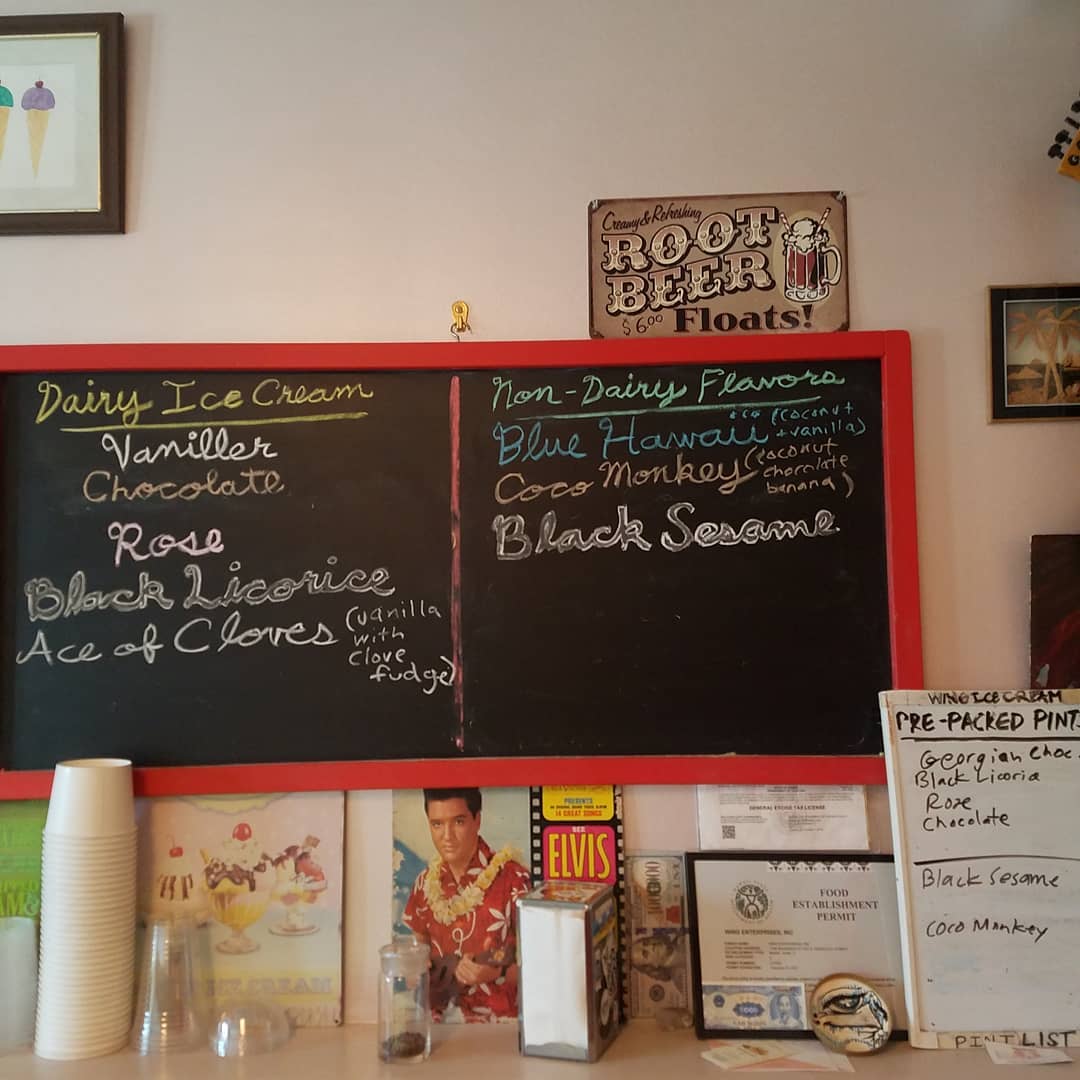 Creamy & Refreshing
ROOT
BEER
$6.00 Floats!
Dairy Ice Cream
Vaniller
Chocolate
Rose
Black Licorice
Ace of Cloves (vanilla
with
clove
fudge)
Non-Dairy Flavors
Blue Hawaii (coconut
+vanilla)
Coco Monkey (coconut
chocolate
banana)
Black Sesame
WING ICE CREAM
PRE-PACKED PINT
Georgian Choc.
Black Licoria
Roze
Chocolate
Black Sesame
Coco Monkey
PINT LIST
PRESENTS
14 GREAT SONGS
ELVIS
ICE CREAM
GENERAL EXCISE TAX LICENSE
FOOD
ESTABLISHMENT
PERMIT
WING ENTERPRISES, INC